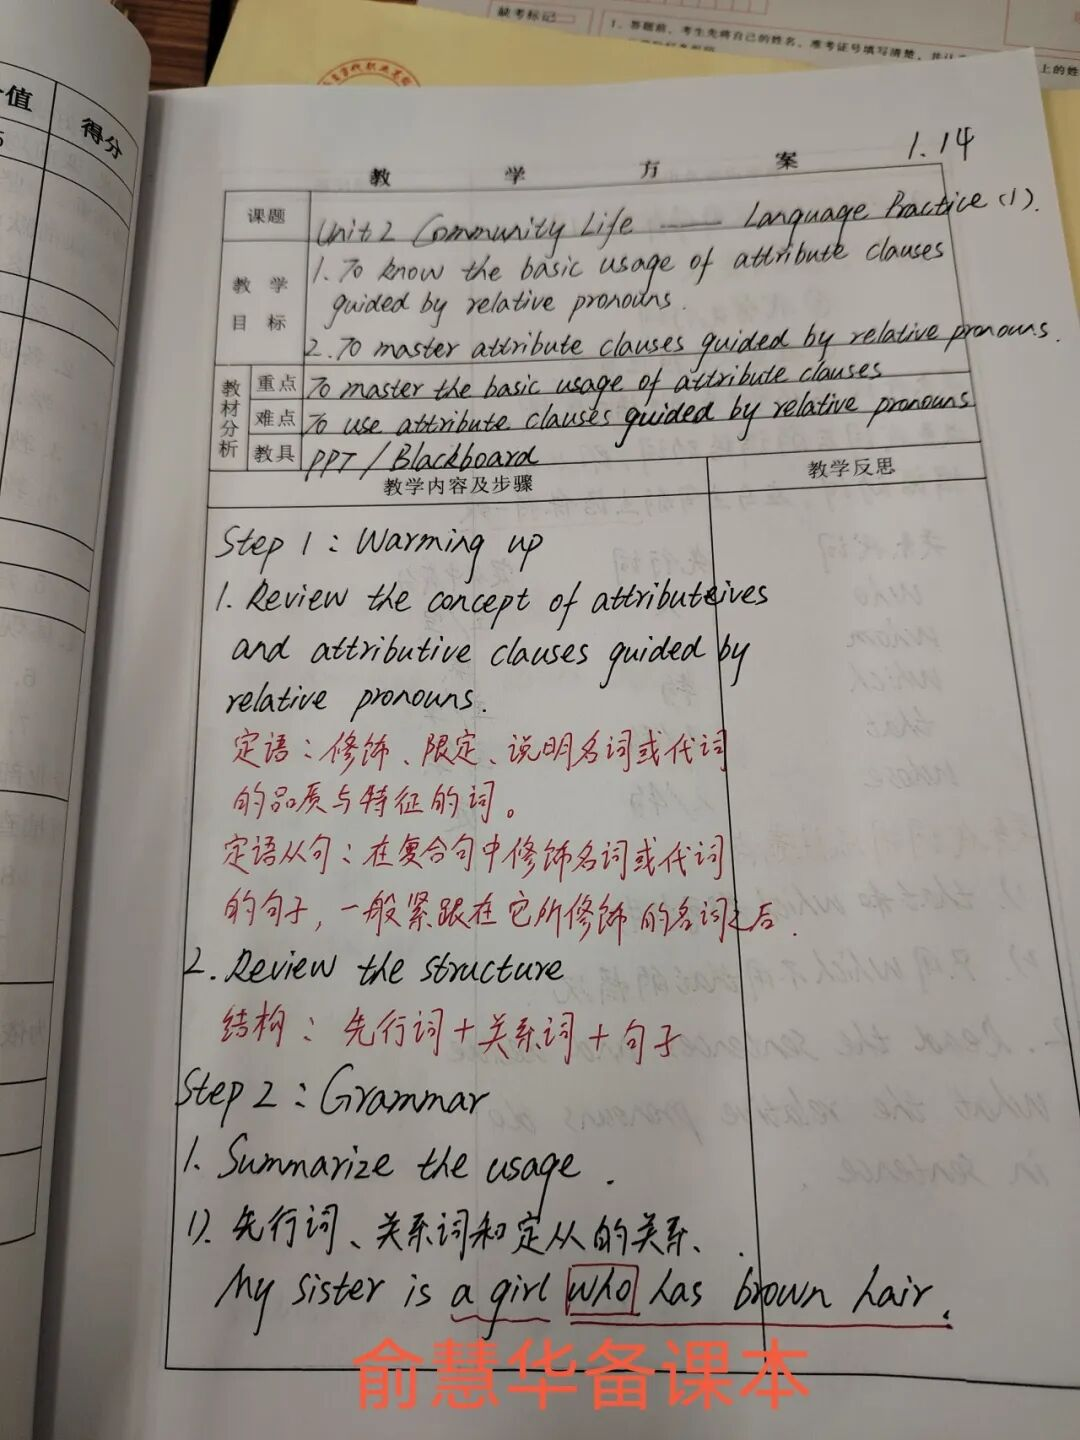 缺考标记
1、答题前，考生先将自己的姓名、准考证号填写清楚，并认
上的姓
值
得分
1.14
教 学 方 案
课题
Unit 2 Community Life —— Language Practice (1).
教 学 目 标
1. To know the basic usage of attribute clauses
guided by relative pronouns.
2. To master attribute clauses guided by relative pronouns.
教材分析
重点
To master the basic usage of attribute clauses
难点
To use attribute clauses guided by relative pronouns
教具
PPT / Blackboard
教学内容及步骤
教学反思
Step 1: Warming up
1. Review the concept of attributeives
and attributive clauses guided by
relative pronouns.
定语：修饰、限定、说明名词或代词
的品质与特征的词。
定语从句：在复合句中修饰名词或代词
的句子，一般紧跟在它所修饰的名词之后.
2. Review the structure
结构：先行词+关系词+句子
Step 2: Grammar
1. Summarize the usage.
1). 先行词、关系词和定从的关系.
My sister is a girl who has brown hair.
俞慧华备课本